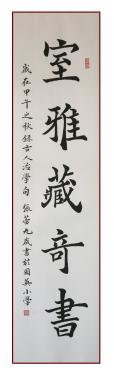 室雅藏奇書
歲在甲午之秋錄古人治學句 張蕾九歲書於國英小學